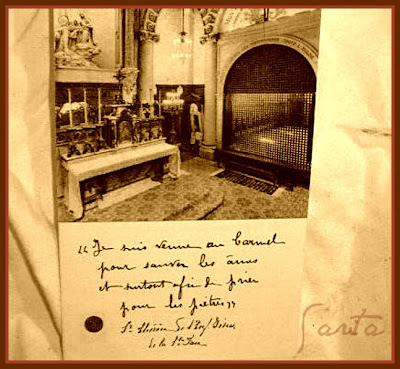 “ Je suis venue au Carmel
pour sauver les âmes
et surtout afin de prier
pour les prêtres ”
Ste Thérèse de l'Enf Jésus
de la Ste Face
Sarita